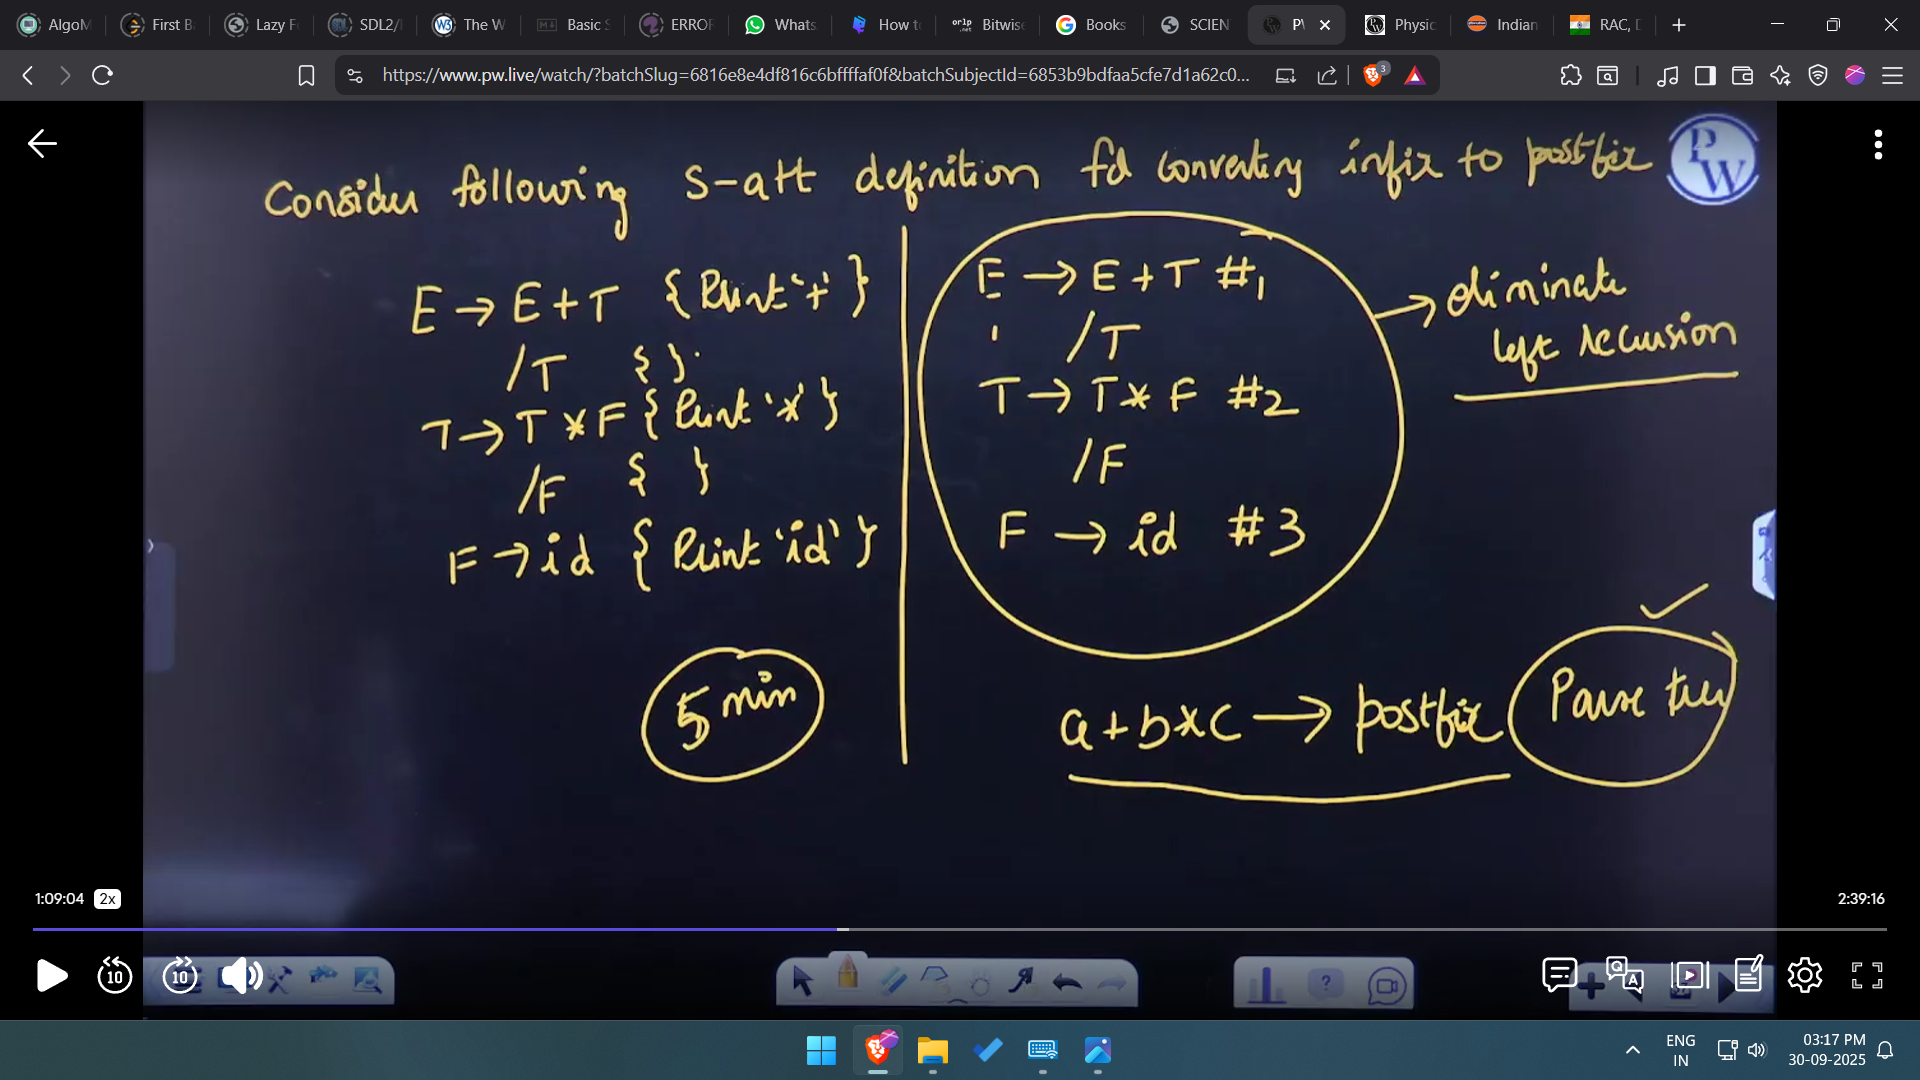 AlgoM
First B
Lazy F
SDL2/
The W
Basic S
ERROR
Whats
How t
orlp .net Bitwise
Books
SCIEN
P\
Physic
Indian
RAC, D
https://www.pw.live/watch/?batchSlug=6816e8e4df816c6bffffaf0f&batchSubjectId=6853b9bdfaa5cfe7d1a62c0...
3
Consider following S-att definition for converting infix to postfix
PW
E → E + T { Print '+' }
/T { }
T → T * F { Print '*' }
/F { }
F → id { Print 'id' }
5 min
E → E + T #1
/T
T → T * F #2
/F
F → id #3
eliminate
left recursion
a + b * c → postfix
Parse tree
1:09:04 2x
2:39:16
10
10
ENG
IN
03:17 PM
30-09-2025